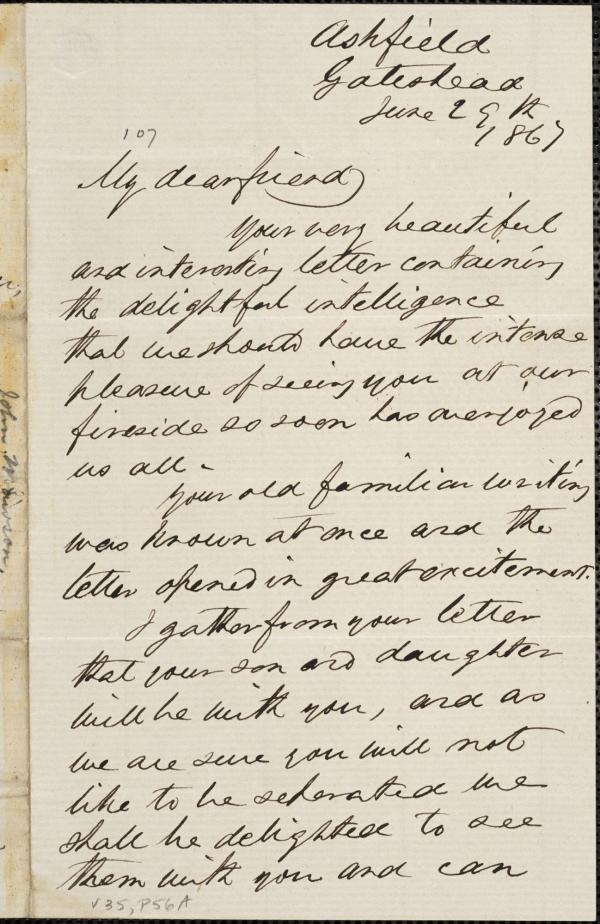 Ashfield
Gateshead
June 29th
1867
107
My dear friend
Your very beautiful
and interesting letter containing
the delightful intelligence
that we should have the intense
pleasure of seeing you at our
fireside so soon has overjoyed
us all.
Your old familiar writing
was known at once and the
letter opened in great excitement.
I gather from your letter
that your son and daughter
will be with you, and as
we are sure you will not
like to be seperated we
shall be delighted to see
them with you and can
v35, P56A
John